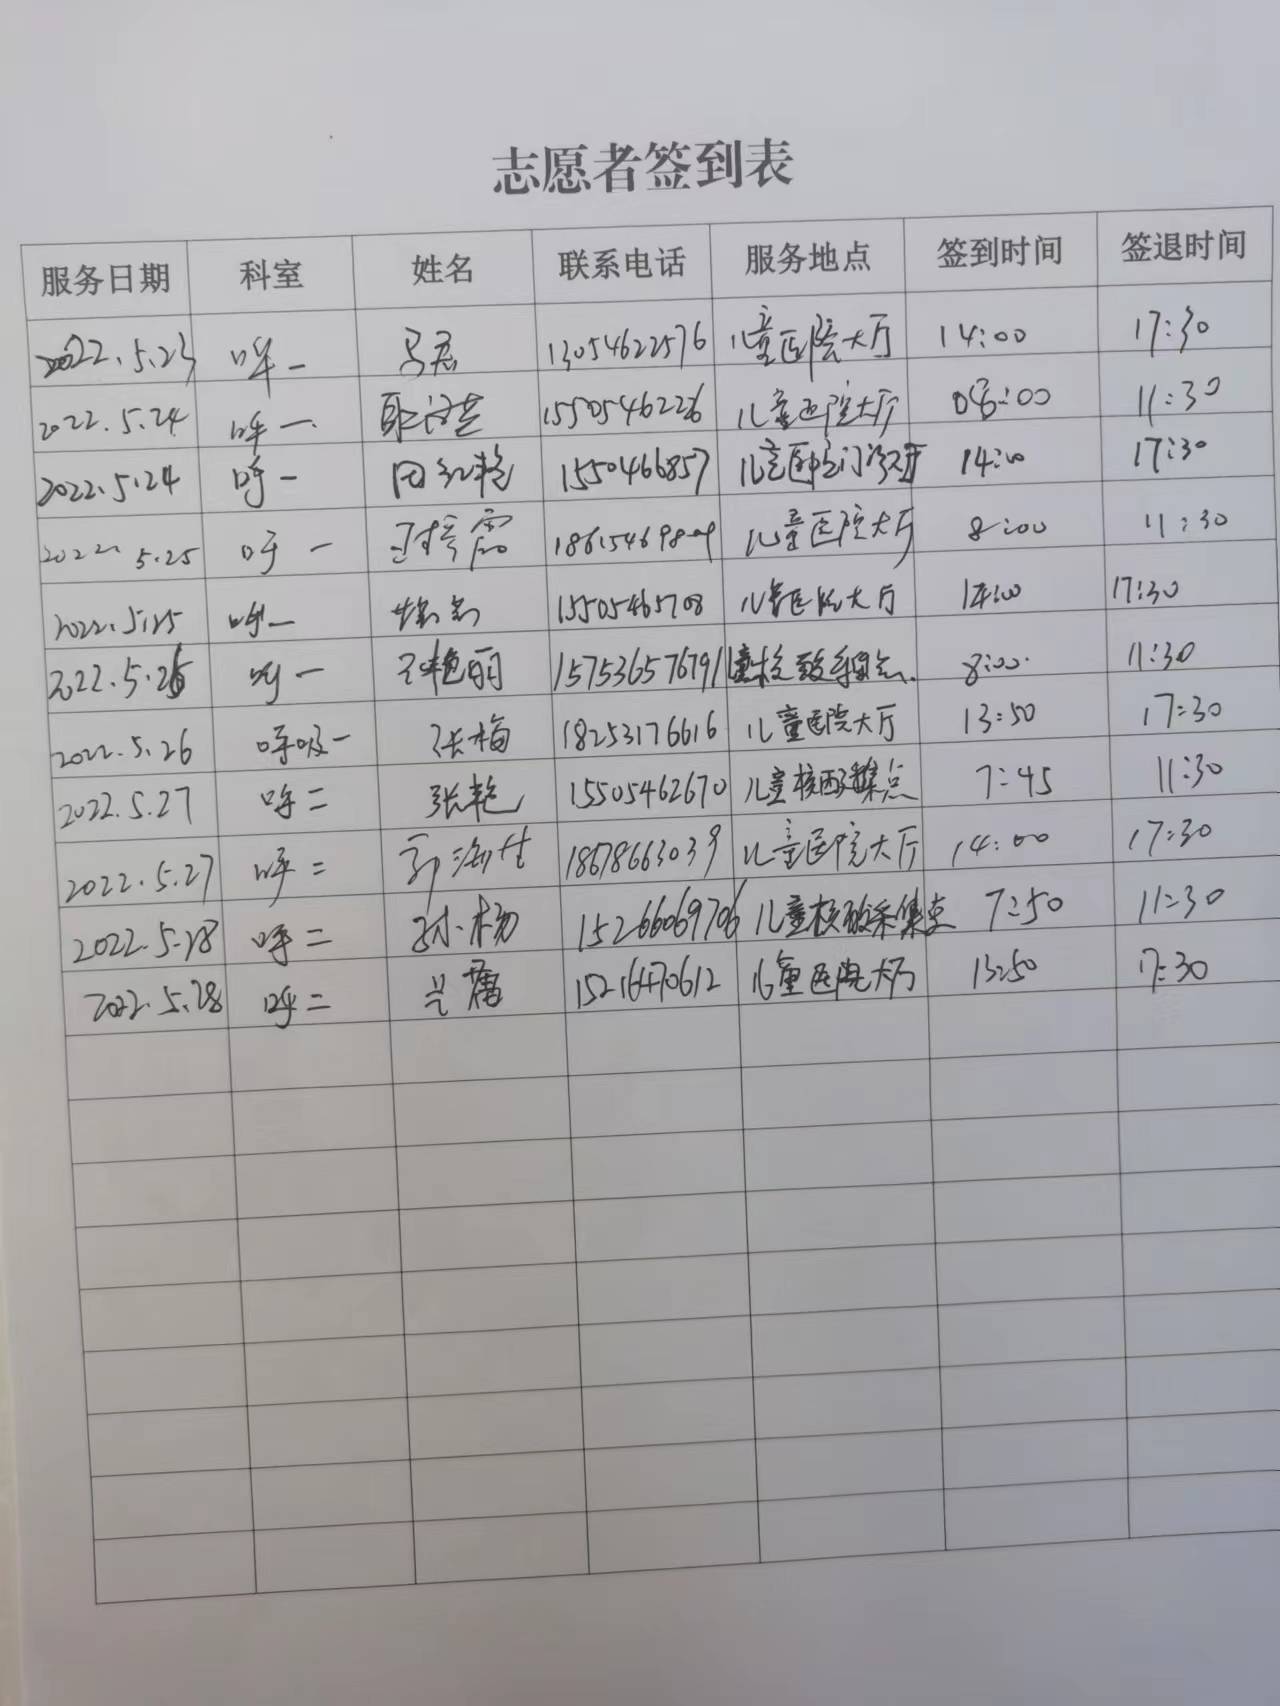 志愿者签到表
服务日期 科室 姓名 联系电话 服务地点 签到时间 签退时间
2022.5.23 呼一 马磊 13054622576 儿童医院大厅 14:00 17:30
2022.5.24 呼一 15505462226 儿童医院大厅 08:00 11:30
2022.5.24 呼一 田红艳 1550466857 14:00 17:30
2022.5.25 呼一 儿童医院大厅 8:00 11:30
2022.5.25 呼一 15505465708 儿童医院大厅 14:00 17:30
2022.5.26 呼一 艳丽 15753657679 8:00 11:30
2022.5.26 呼吸一 张梅 18253176616 儿童医院大厅 13:50 17:30
2022.5.27 呼二 张艳 15505462670 儿童核酸采集点 7:45 11:30
2022.5.27 呼二 18678663039 儿童医院大厅 14:00 17:30
2022.5.28 呼二 孙杨 15266069706 儿童核酸采集点 7:50 11:30
2022.5.28 呼二 15216470612 儿童医院大厅 13:50 17:30